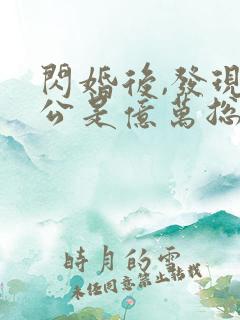 閃婚後,發現
公是億萬總
時月的雲
未經同意禁止轉載